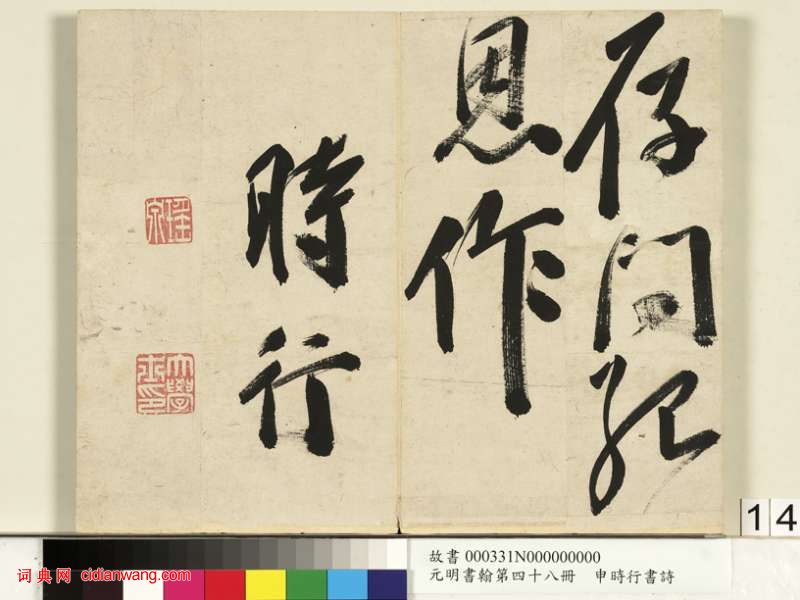 存問紀
恩作
時行
瑤泉
大學士印
14
故書 000331N000000000
元明書翰第四十八冊 申時行書詩
词典网 cidianwang.com